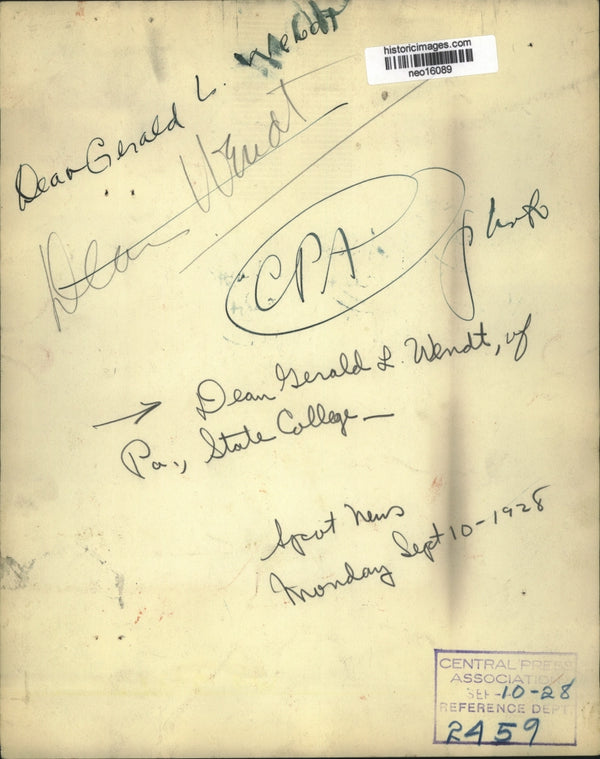 historicimages.com
neo16089
Dean Gerald L. Wendt
Dean Wendt
CPA photo
→ Dean Gerald L. Wendt, of
Pa., State College —
Spot News
Monday Sept 10-1928
CENTRAL PRESS
ASSOCIATION
SEP -10-28
REFERENCE DEPT.
2459